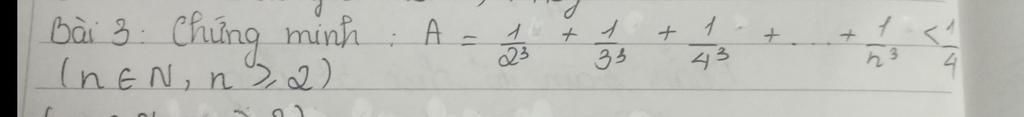 Bài 3: Chứng minh: A = 1/2³ + 1/3³ + 1/4³ + ... + 1/n³ < 1/4
(n ∈ N, n ⩾ 2)